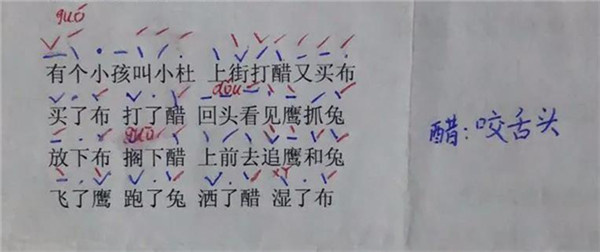 guó
有个小孩叫小杜 上街打醋又买布
dōu
买了布 打了醋 回头看见鹰抓兔
guō
放下布 搁下醋 上前去追鹰和兔
飞了鹰 跑了兔 洒了醋 湿了布
醋:咬舌头